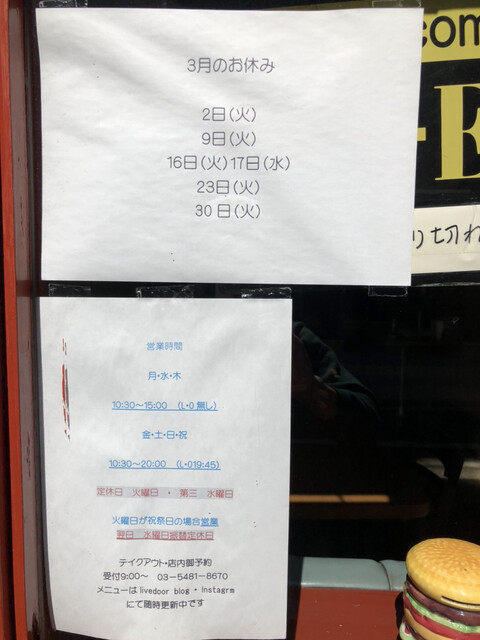 3月のお休み
2日(火)
9日(火)
16日(火)17日(水)
23日(火)
30日(火)
com
E
切れ
営業時間
月・水・木
10:30〜15:00 (L・O無し)
金・土・日・祝
10:30〜20:00 (L・O19:45)
定休日 火曜日 ・ 第三 水曜日
火曜日が祝祭日の場合営業
翌日 水曜日振替定休日
テイクアウト・店内御予約
受付9:00〜 03-5481-8670
メニューは livedoor blog ・ Instagrm
にて随時更新中です